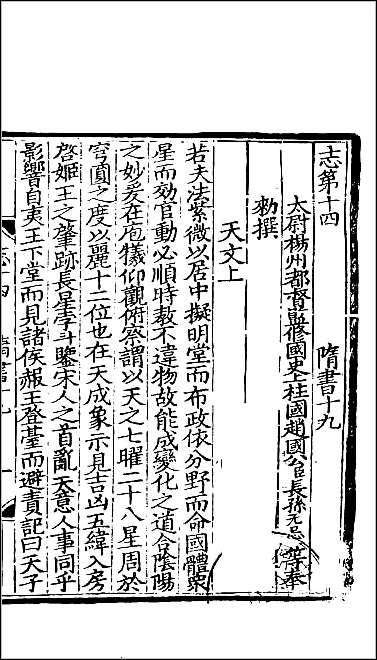 志第十四 隋書十九
太尉楊州都督監修國史上柱國趙國公臣長孫无忌等奉
勑撰
天文上
若夫法紫微以居中擬明堂而布政依分野而命國體衆
星而効官動必順時敎不違物故能成變化之道合陰陽
之妙爰在庖犧仰觀俯察謂以天之七曜二十八星周於
穹圓之度以麗十二位也在天成象示見吉凶五緯入房
啓姬王之肇跡長星孛斗鑒宋人之首亂天意人事同乎
影響自夷王下堂而見諸侯赧王登臺而避責記曰天子